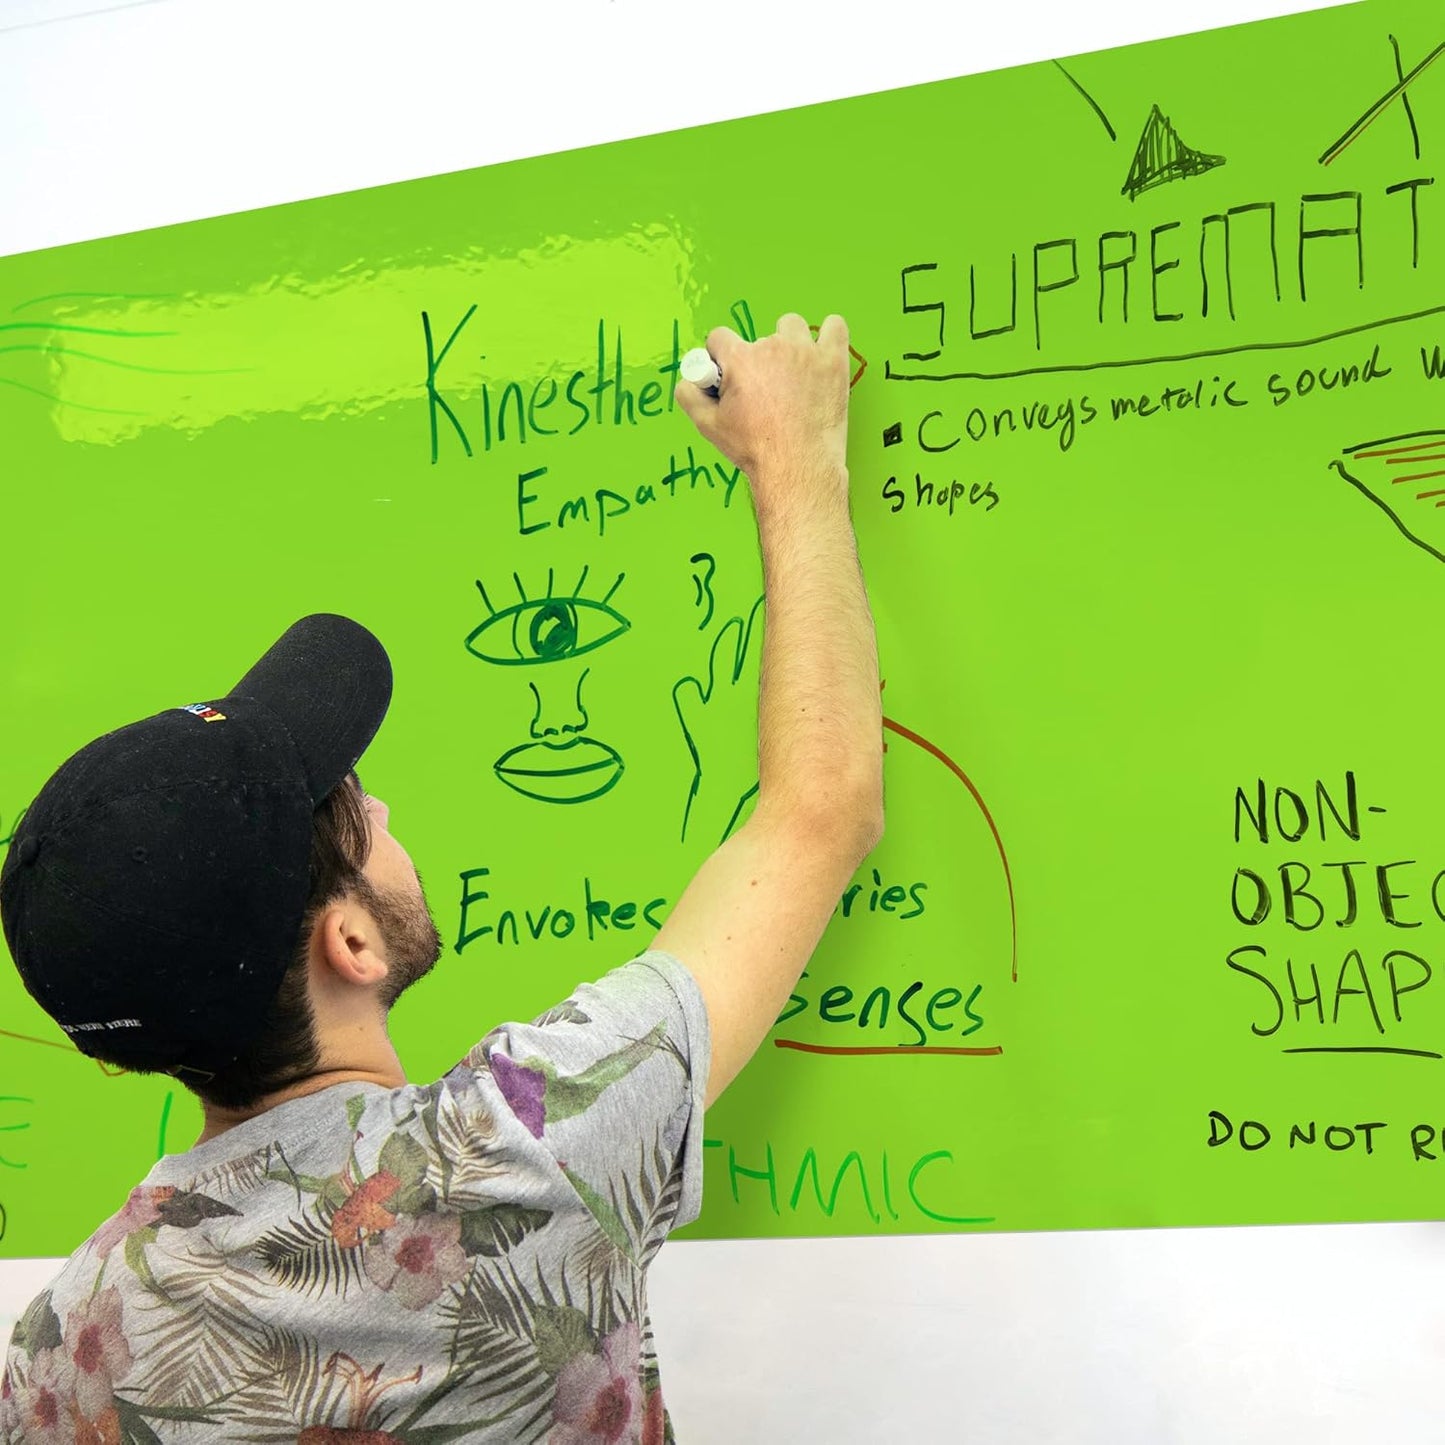 Kinesthet
Empathy
Envokes ries
Senses
THMIC
SUPREMAT
▪ Conveys metalic sound w
shapes
NON-
OBJEC
SHAP
DO NOT R